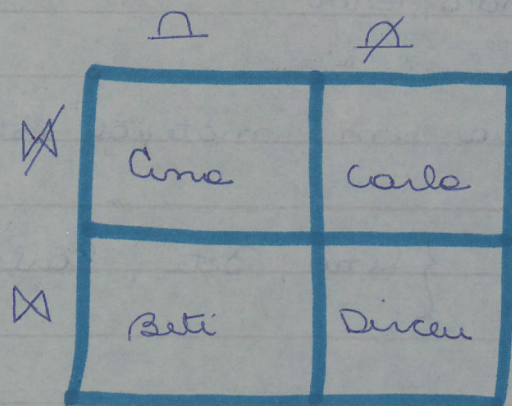 Ana Carla
Beti Dirceu